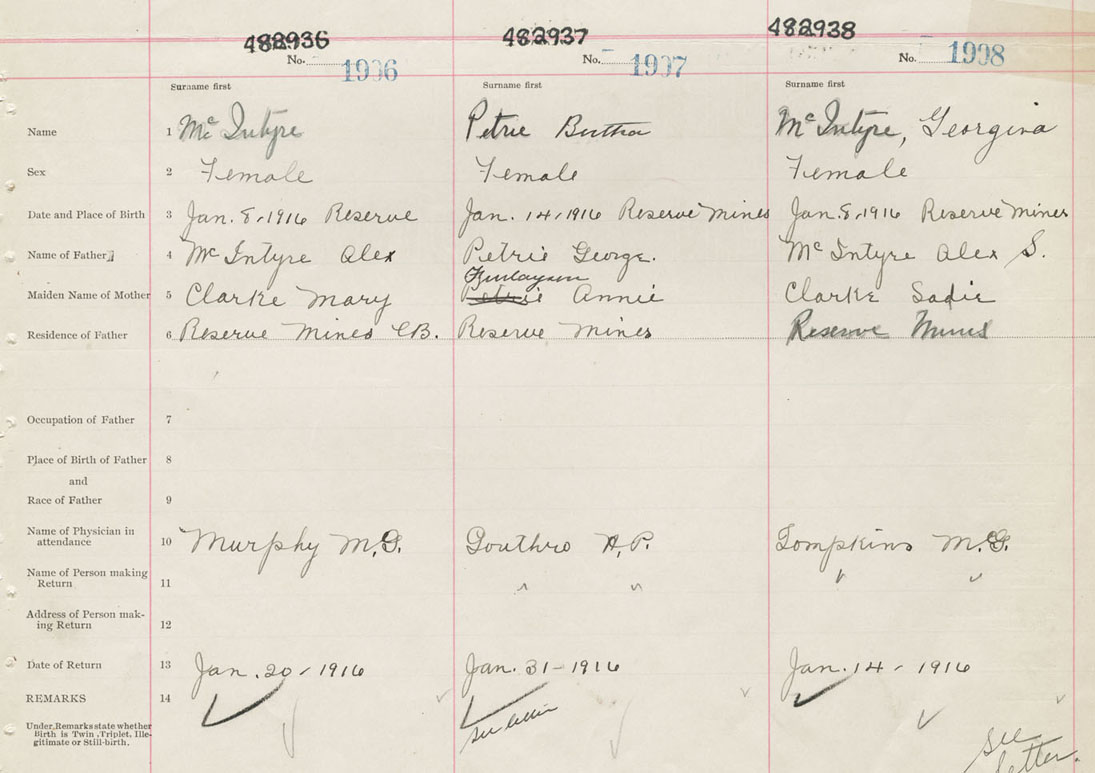 482936 482937 482938
No. 1906 No. 1907 No. 1908
Surname first Surname first Surname first
Name 1 Mc Intyre Petrie Bertha Mc Intyre, Georgina
Sex 2 Female Female Female
Date and Place of Birth 3 Jan. 8, 1916 Reserve Jan. 14, 1916 Reserve Mines Jan. 8, 1916 Reserve Mines
Name of Father 4 Mc Intyre Alex Petrie George. Mc Intyre Alex S.
Finlayson
Maiden Name of Mother 5 Clarke Mary Petrie Annie Clarke Sadie
Residence of Father 6 Reserve Mines C.B. Reserve Mines Reserve Mines
Occupation of Father 7
Place of Birth of Father 8
and
Race of Father 9
Name of Physician in
attendance 10 Murphy M.G. Gouthro H.P. Tompkins M.G.
Name of Person making
Return 11 " " " "
Address of Person mak-
ing Return 12
Date of Return 13 Jan. 20 - 1916 Jan. 31 - 1916 Jan. 14 - 1916
REMARKS 14
see letter
Under Remarks state whether
Birth is Twin, Triplet, Ille-
gitimate or Still-birth.
see
letter.